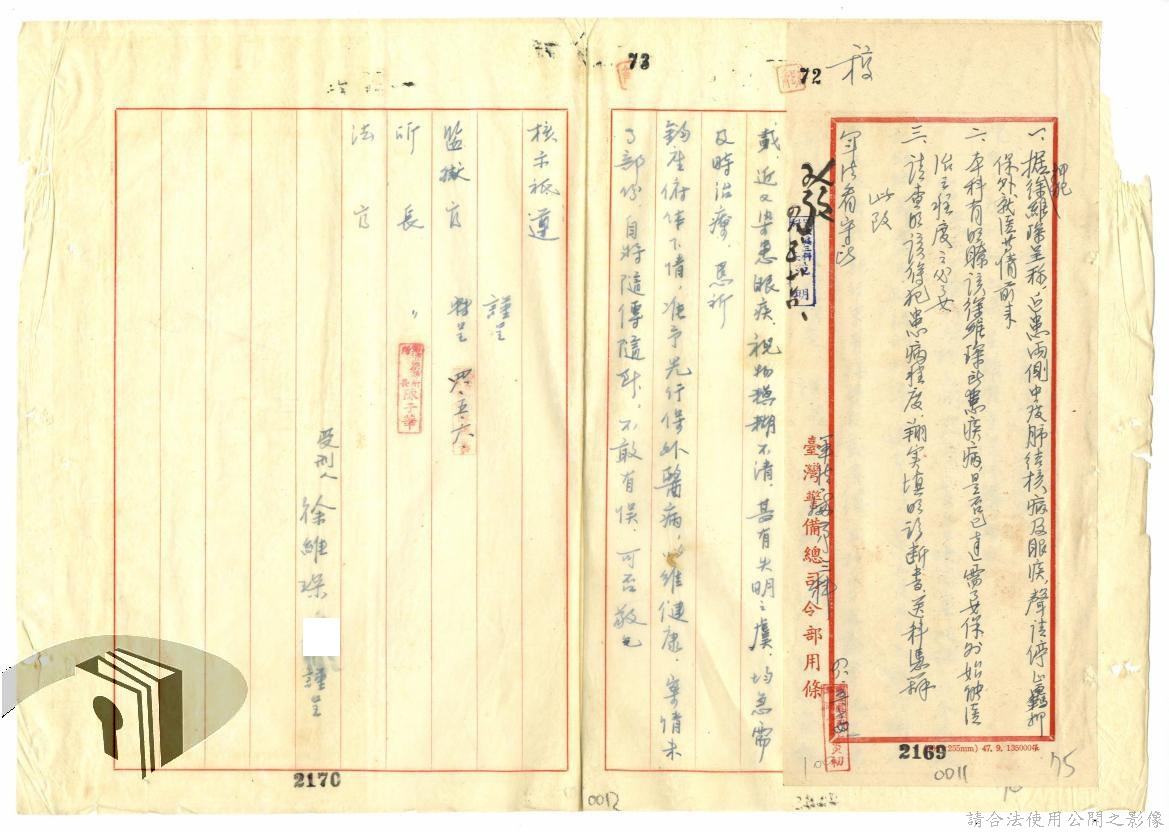 72
稿
一、據押犯徐維琛呈稱:已患兩側中度肺結核病及眼疾,聲請停止羈押
保外就医等情前来
二、本科有明瞭該徐維琛所患疾病,是否已達需要保外始能医
治之程度之必要
三、請查明該徐犯患病程度,翔实填明診断書,送科憑辦
此致
軍法看守所
軍法處
三科
臺灣警備總司令部用條
255mm) 47. 9. 135000年
2169
0011
75
73
戴,近又染患眼疾,視物模糊不清,甚有失明之虞,均急需
及時治療,懇祈
鈞座俯体下情,准予先行保外醫病,以維健康,案情未
了部份,自將隨傳隨到,不敢有悞,可否敬乞
核示祇遵
謹呈
監獄官 轉呈
四、五、六
所長 〃
法官
受刑人 徐維琛 謹呈
2170
0012
請合法使用公開之影像